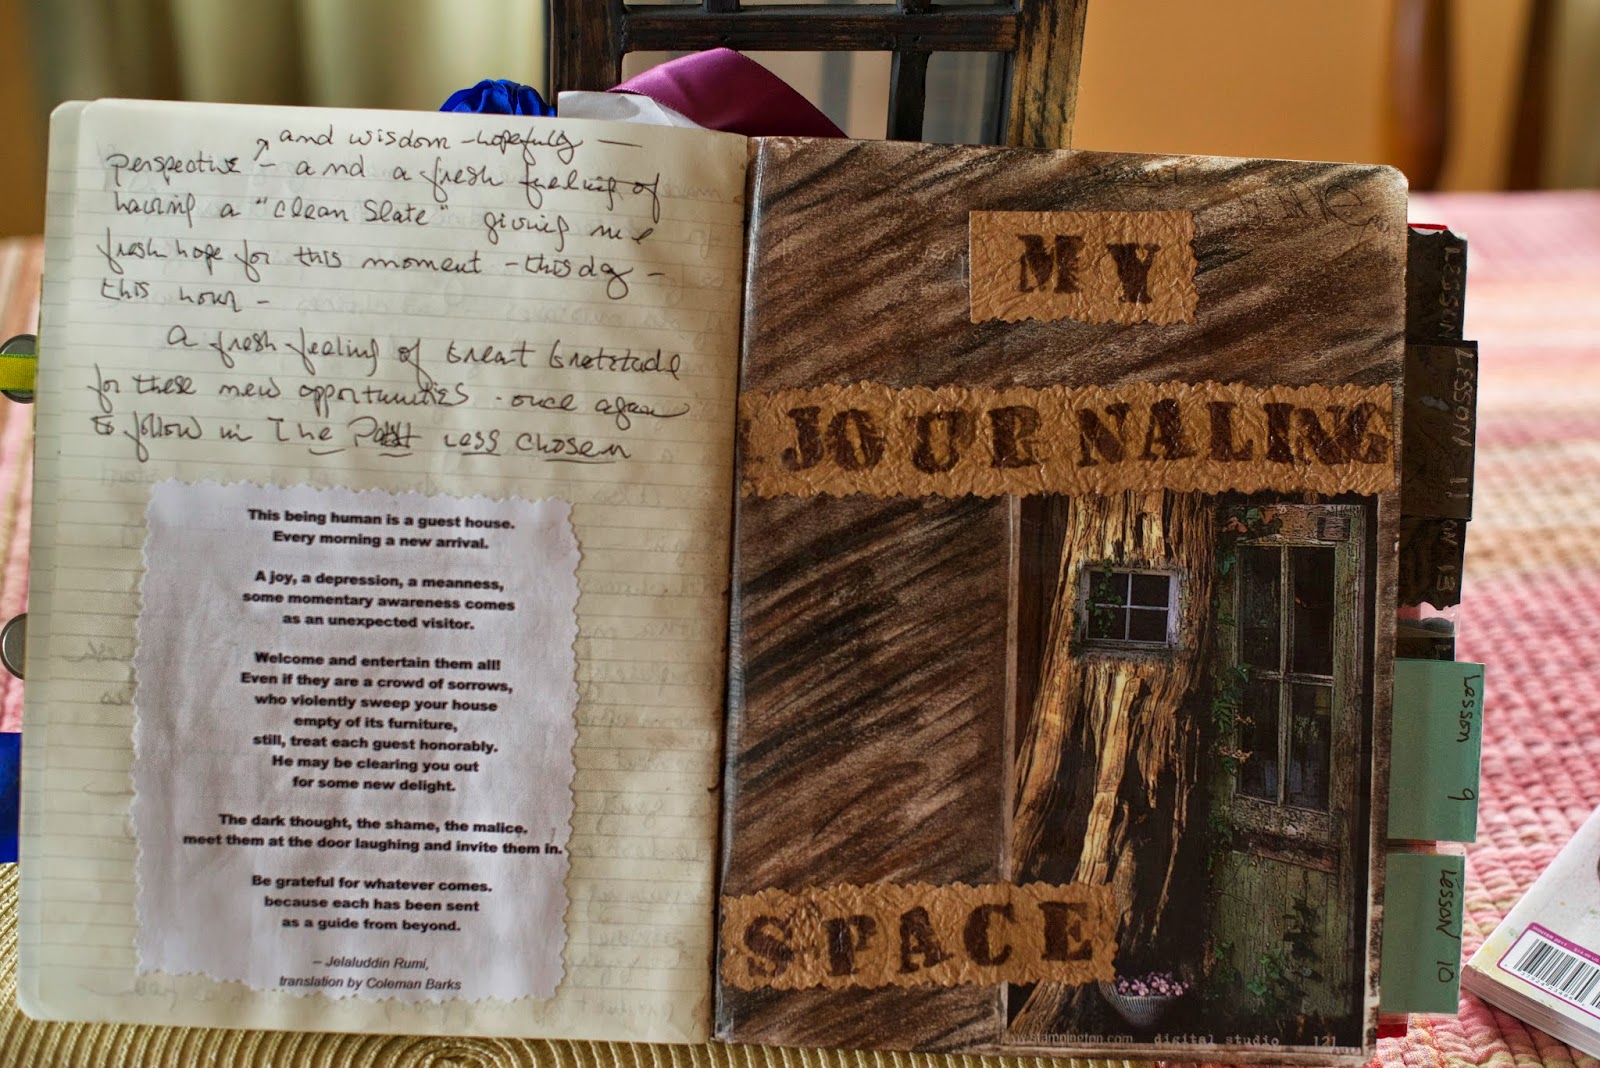 and wisdom - hopefully -
perspective - and a fresh fueling of
having a "clean slate" giving me
fresh hope for this moment - this day -
this hour -
A fresh feeling of Great Gratitude
for these new opportunities - once again
to follow in The Path Less Chosen
This being human is a guest house.
Every morning a new arrival.
A joy, a depression, a meanness,
some momentary awareness comes
as an unexpected visitor.
Welcome and entertain them all!
Even if they are a crowd of sorrows,
who violently sweep your house
empty of its furniture,
still, treat each guest honorably.
He may be clearing you out
for some new delight.
The dark thought, the shame, the malice.
meet them at the door laughing and invite them in.
Be grateful for whatever comes.
because each has been sent
as a guide from beyond.
– Jelaluddin Rumi,
translation by Coleman Barks
MY
JOURNALING
SPACE
digital studio 121
LESSON
LESSON 11
ON 13
Lesson 9
Lesson 10